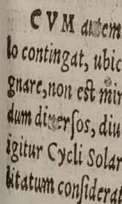 CVM autem
lo contingat, ubic
gnare, non est mir
dum diuersos, diu
igitur Cycli Solar
litatum considerat